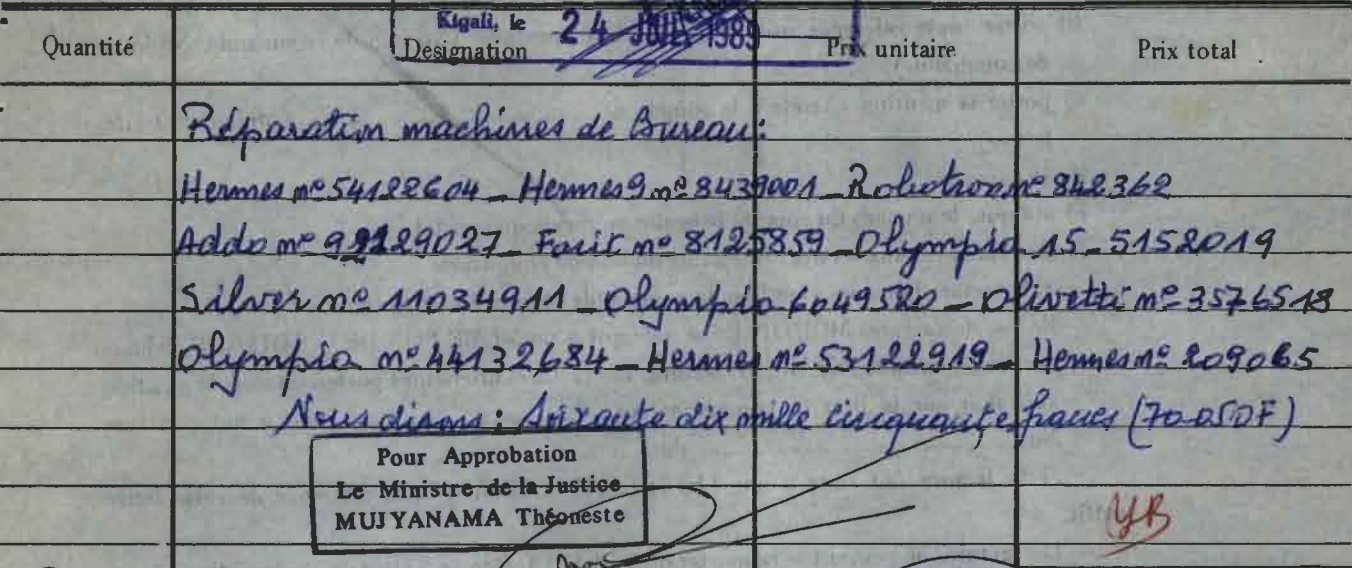 Kigali, le 24 JUIL 1989
Quantité Designation Prix unitaire Prix total
Réparation machines de Bureau:
Hermes nº 54122604 _ Hermes 9 nº 8439001 _ Robotron nº 842362
Addo nº 92229027 _ Facit nº 8125859 _ Olympia 15_5152019
Silver nº 11034911 _ Olympia 6049520 _ Olivetti nº 3576513
Olympia nº 44132684 _ Hermes nº 53122919 _ Hermes nº 209065
Nous disons : Soixante dix mille cinquante francs (70.050F)
Pour Approbation
Le Ministre de la Justice
MUJYANAMA Théoneste
YB